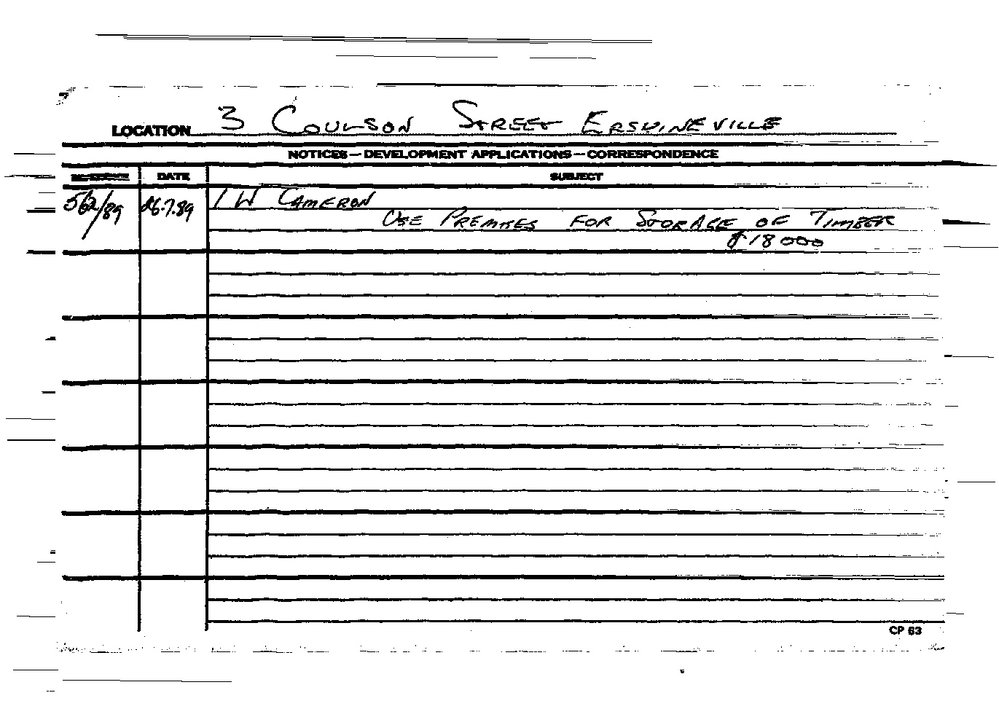 LOCATION 3 COULSON STREET ERSKINEVILLE
NOTICES — DEVELOPMENT APPLICATIONS — CORRESPONDENCE
REFERENCE DATE SUBJECT
562/89 26.7.89 I W CAMERON
USE PREMISES FOR STORAGE OF TIMBER
$18000
CP 63